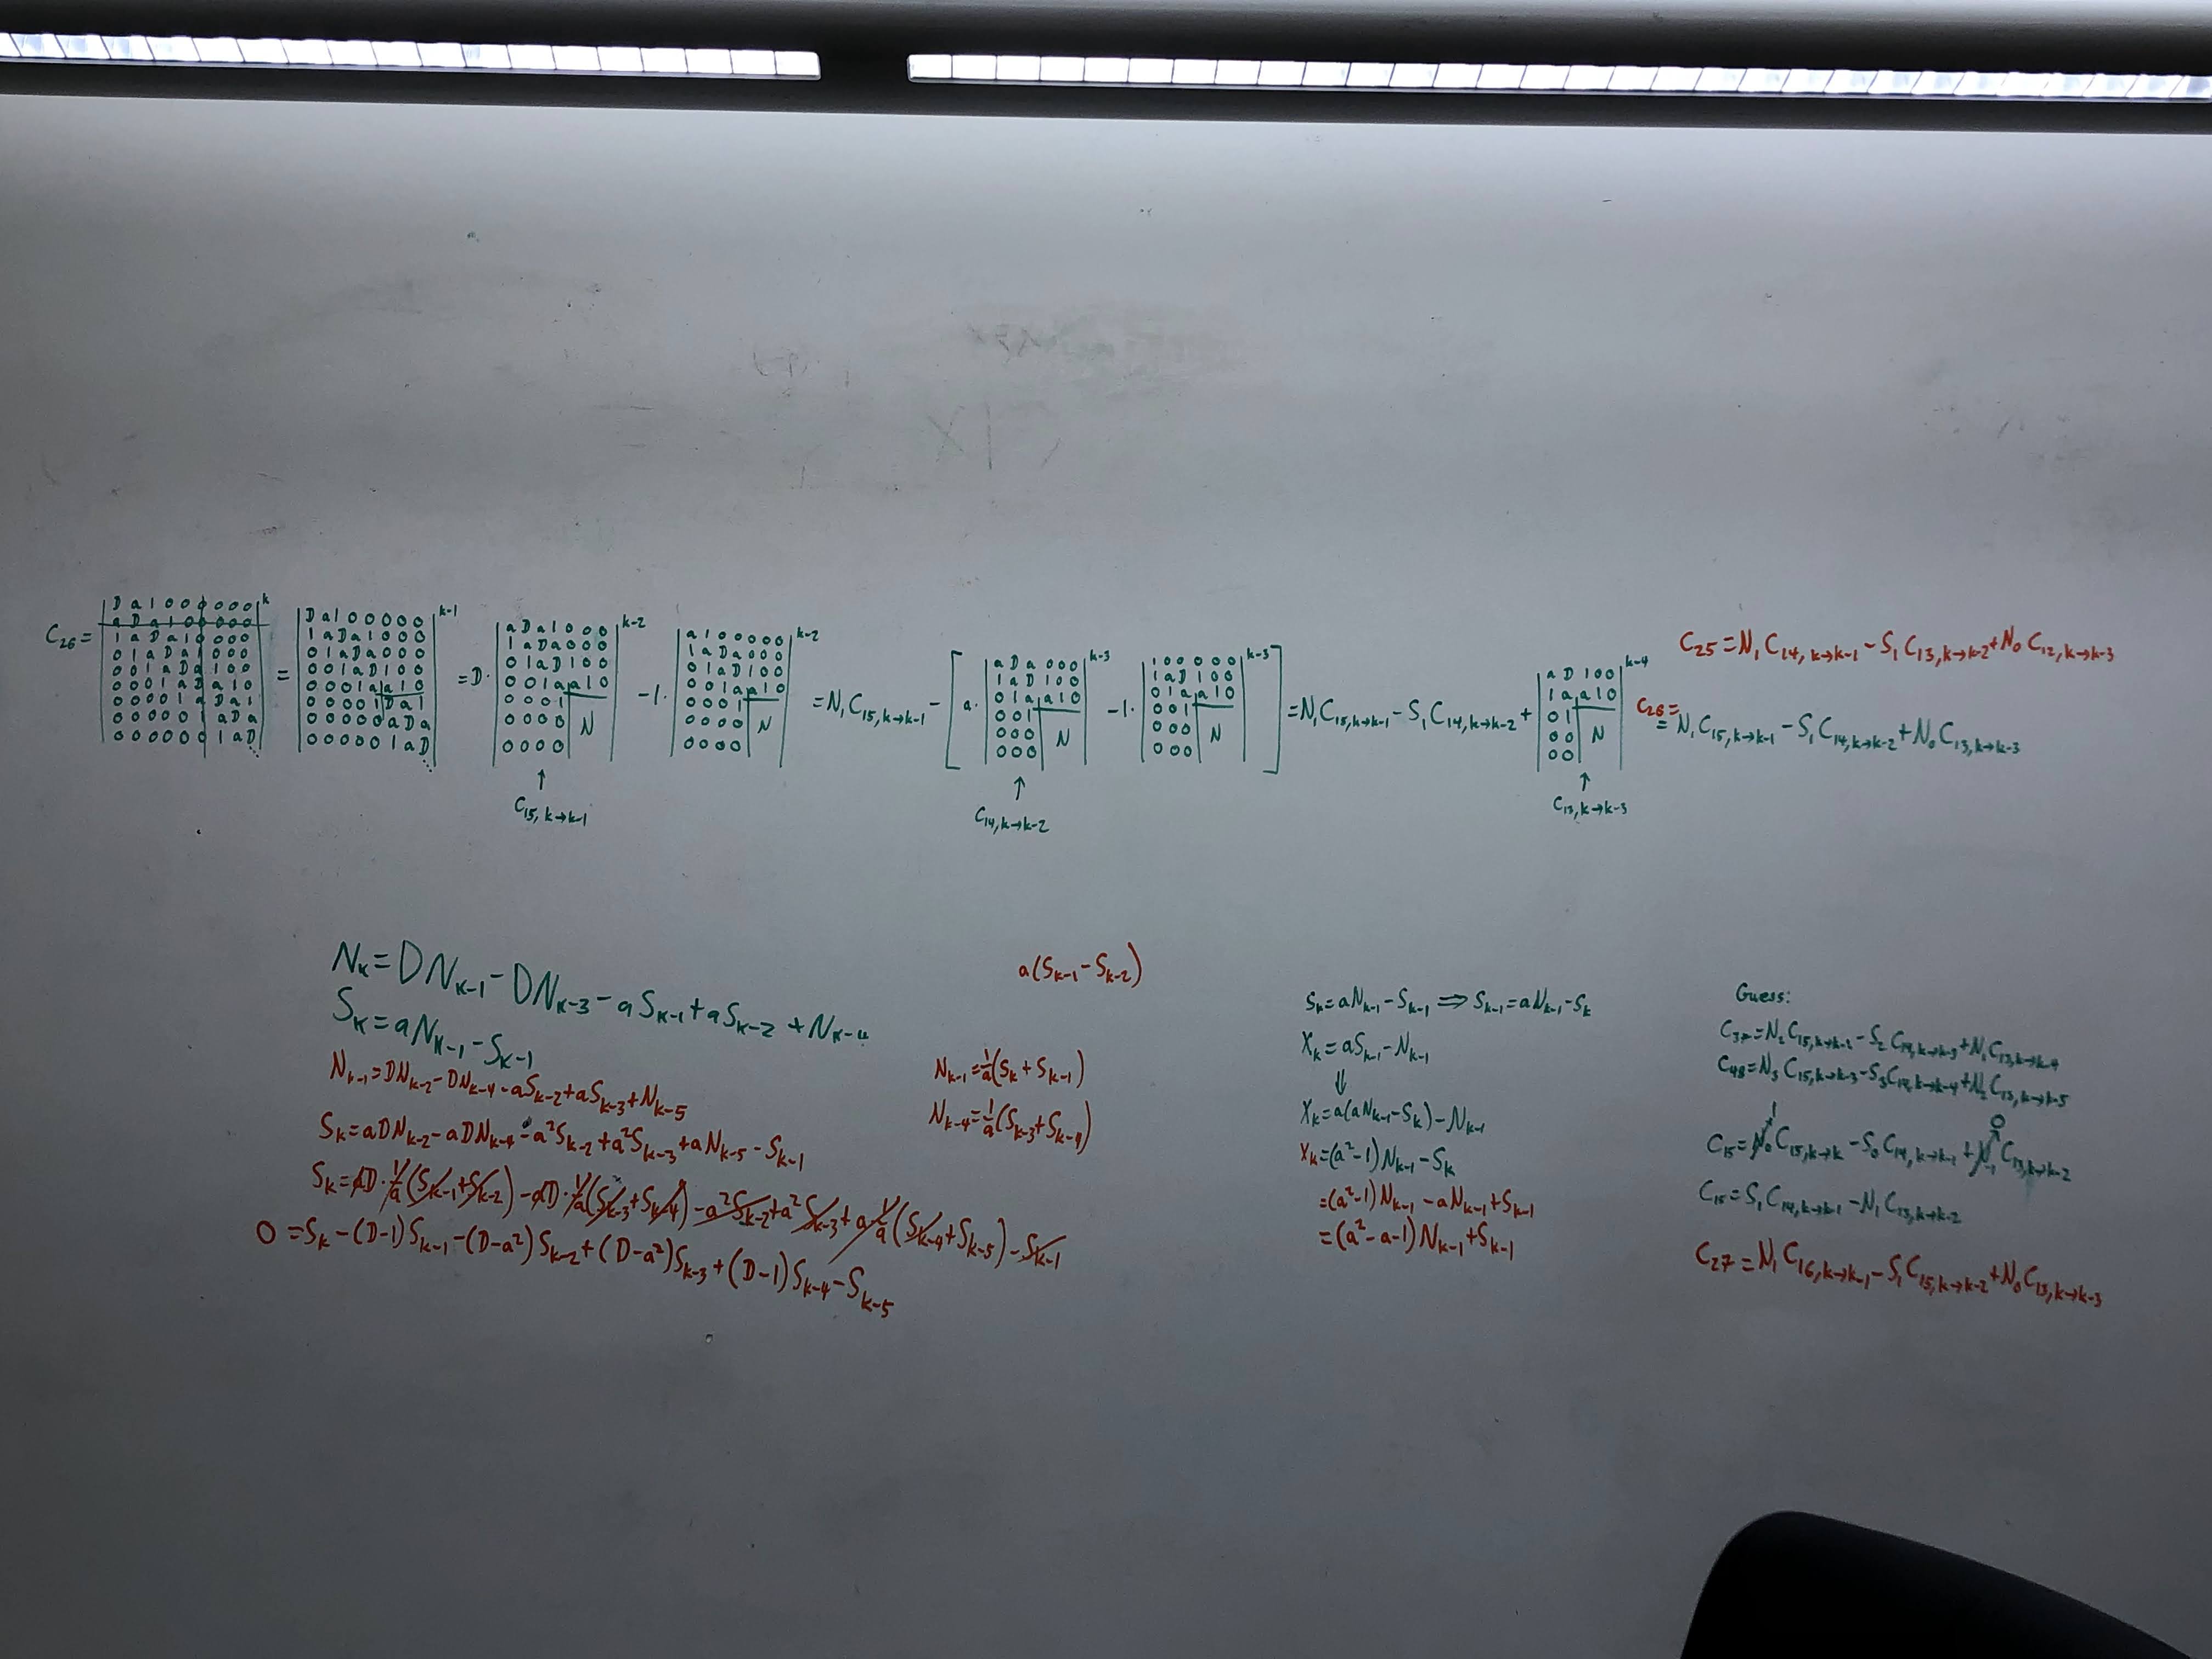 C₂₆ =
D a 1 0 0 0 0 0 0 k
a D a 1 0 0 0 0 0
1 a D a 1 0 0 0 0
0 1 a D a 1 0 0 0
0 0 1 a D a 1 0 0
0 0 0 1 a D a 1 0
0 0 0 0 1 a D a 1
0 0 0 0 0 1 a D a
0 0 0 0 0 0 1 a D
=
D a 1 0 0 0 0 0 k-1
1 a D a 1 0 0 0
0 1 a D a 0 0 0
0 0 1 a D 1 0 0
0 0 0 1 a a 1 0
0 0 0 0 1 D a 1
0 0 0 0 0 a D a
0 0 0 0 0 1 a D
= D ·
a D a 1 0 0 0 k-2
1 a D a 0 0 0
0 1 a D 1 0 0
0 0 1 a a 1 0
0 0 0 1
0 0 0 0 N
0 0 0 0
↑
C₁₅, k→k-1
- 1 ·
a 1 0 0 0 0 0 k-2
1 a D a 0 0 0
0 1 a D 1 0 0
0 0 1 a a 1 0
0 0 0 1
0 0 0 0 N
0 0 0 0
= N₁C₁₅, k→k-1 - [ a ·
a D a 0 0 0 k-3
1 a D 1 0 0
0 1 a a 1 0
0 0 1
0 0 0 N
0 0 0
↑
C₁₄, k→k-2
- 1 ·
1 0 0 0 0 0 k-3
1 a D 1 0 0
0 1 a a 1 0
0 0 1
0 0 0 N
0 0 0
] = N₁C₁₅, k→k-1 - S₁C₁₄, k→k-2 +
a D 1 0 0 k-4
1 a a 1 0
0 1
0 0 N
0 0
↑
C₁₃, k→k-3
C₂₅ = N₁C₁₄, k→k-1 - S₁C₁₃, k→k-2 + N₀C₁₂, k→k-3
C₂₆ =
= N₁C₁₅, k→k-1 - S₁C₁₄, k→k-2 + N₀C₁₃, k→k-3
Nₖ = DNₖ₋₁ - DNₖ₋₃ - aSₖ₋₁ + aSₖ₋₂ + Nₖ₋₄
Sₖ = aNₖ₋₁ - Sₖ₋₁
Nₖ₋₁ = DNₖ₋₂ - DNₖ₋₄ - aSₖ₋₂ + aSₖ₋₃ + Nₖ₋₅
Sₖ = aDNₖ₋₂ - aDNₖ₋₄ - a²Sₖ₋₂ + a²Sₖ₋₃ + aNₖ₋₅ - Sₖ₋₁
Sₖ = aD · 1/a (Sₖ₋₁ + Sₖ₋₂) - aD · 1/a (Sₖ₋₃ + Sₖ₋₄) - a²Sₖ₋₂ + a²Sₖ₋₃ + a 1/a (Sₖ₋₄ + Sₖ₋₅) - Sₖ₋₁
0 = Sₖ - (D-1)Sₖ₋₁ - (D-a²)Sₖ₋₂ + (D-a²)Sₖ₋₃ + (D-1)Sₖ₋₄ - Sₖ₋₅
a(Sₖ₋₁ - Sₖ₋₂)
Nₖ₋₁ = 1/a (Sₖ + Sₖ₋₁)
Nₖ₋₄ = 1/a (Sₖ₋₃ + Sₖ₋₄)
Sₖ = aNₖ₋₁ - Sₖ₋₁ ⟹ Sₖ₋₁ = aNₖ₋₁ - Sₖ
Xₖ = aSₖ₋₁ - Nₖ₋₁
⇓
Xₖ = a(aNₖ₋₁ - Sₖ) - Nₖ₋₁
Xₖ = (a²-1)Nₖ₋₁ - Sₖ
= (a²-1)Nₖ₋₁ - aNₖ₋₁ + Sₖ₋₁
= (a²-a-1)Nₖ₋₁ + Sₖ₋₁
Guess:
C₃₇ = N₂C₁₅, k→k-2 - S₂C₁₄, k→k-3 + N₁C₁₃, k→k-4
C₄₈ = N₃C₁₅, k→k-3 - S₃C₁₄, k→k-4 + N₂C₁₃, k→k-5
1 0
C₁₅ = N₀C₁₅, k→k - S₀C₁₄, k→k-1 + N₋₁C₁₃, k→k-2
C₁₅ = S₁C₁₄, k→k-1 - N₁C₁₃, k→k-2
C₂₇ = N₁C₁₆, k→k-1 - S₁C₁₅, k→k-2 + N₀C₁₃, k→k-3